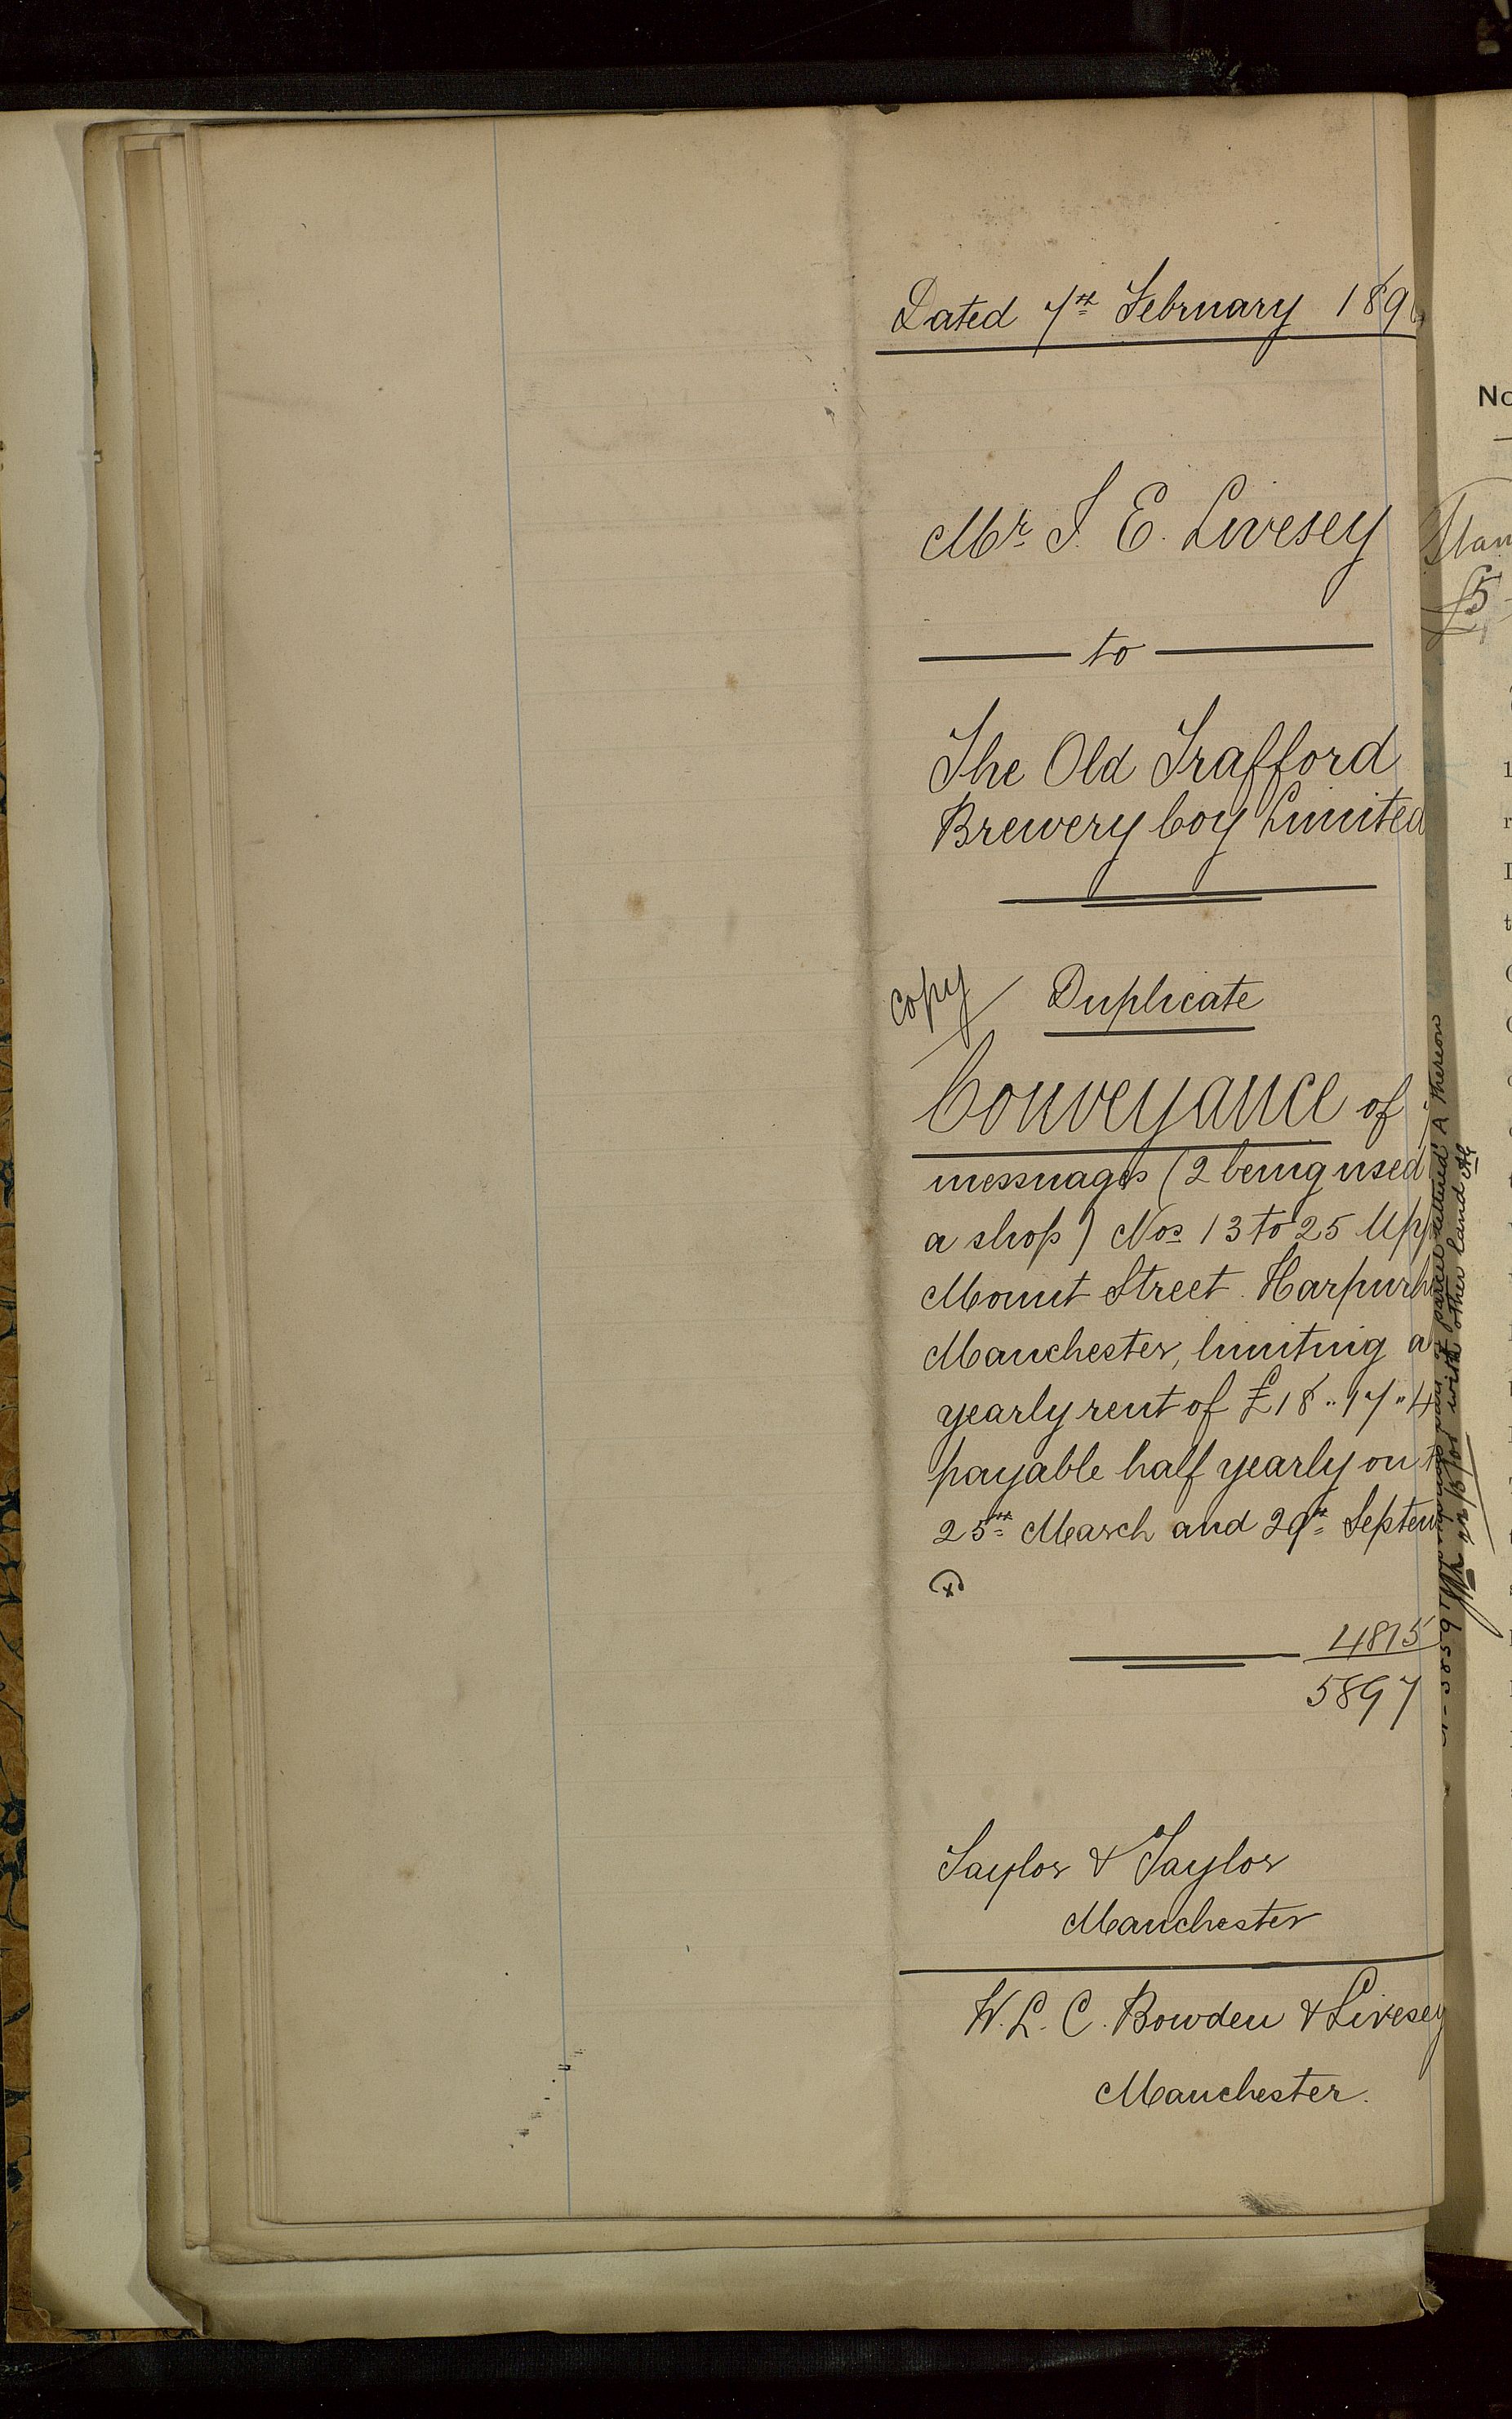 Dated 7th February 189
Mr. J. E. Livesey
to
The Old Trafford
Brewery Coy Limited
copy
Duplicate
Conveyance of
messuages (2 being used
a shop) Nos 13 to 25 Upp
Mount Street Harpurh
Manchester, limiting a
yearly rent of £18.. 17 " 4
payable half yearly on t
25th March and 29th Septem
4875
5897
Taylor & Taylor
Manchester
W. L. C. Bowden & Livesey
Manchester.
part parcel lettered A thereon
for with other land
No
£5